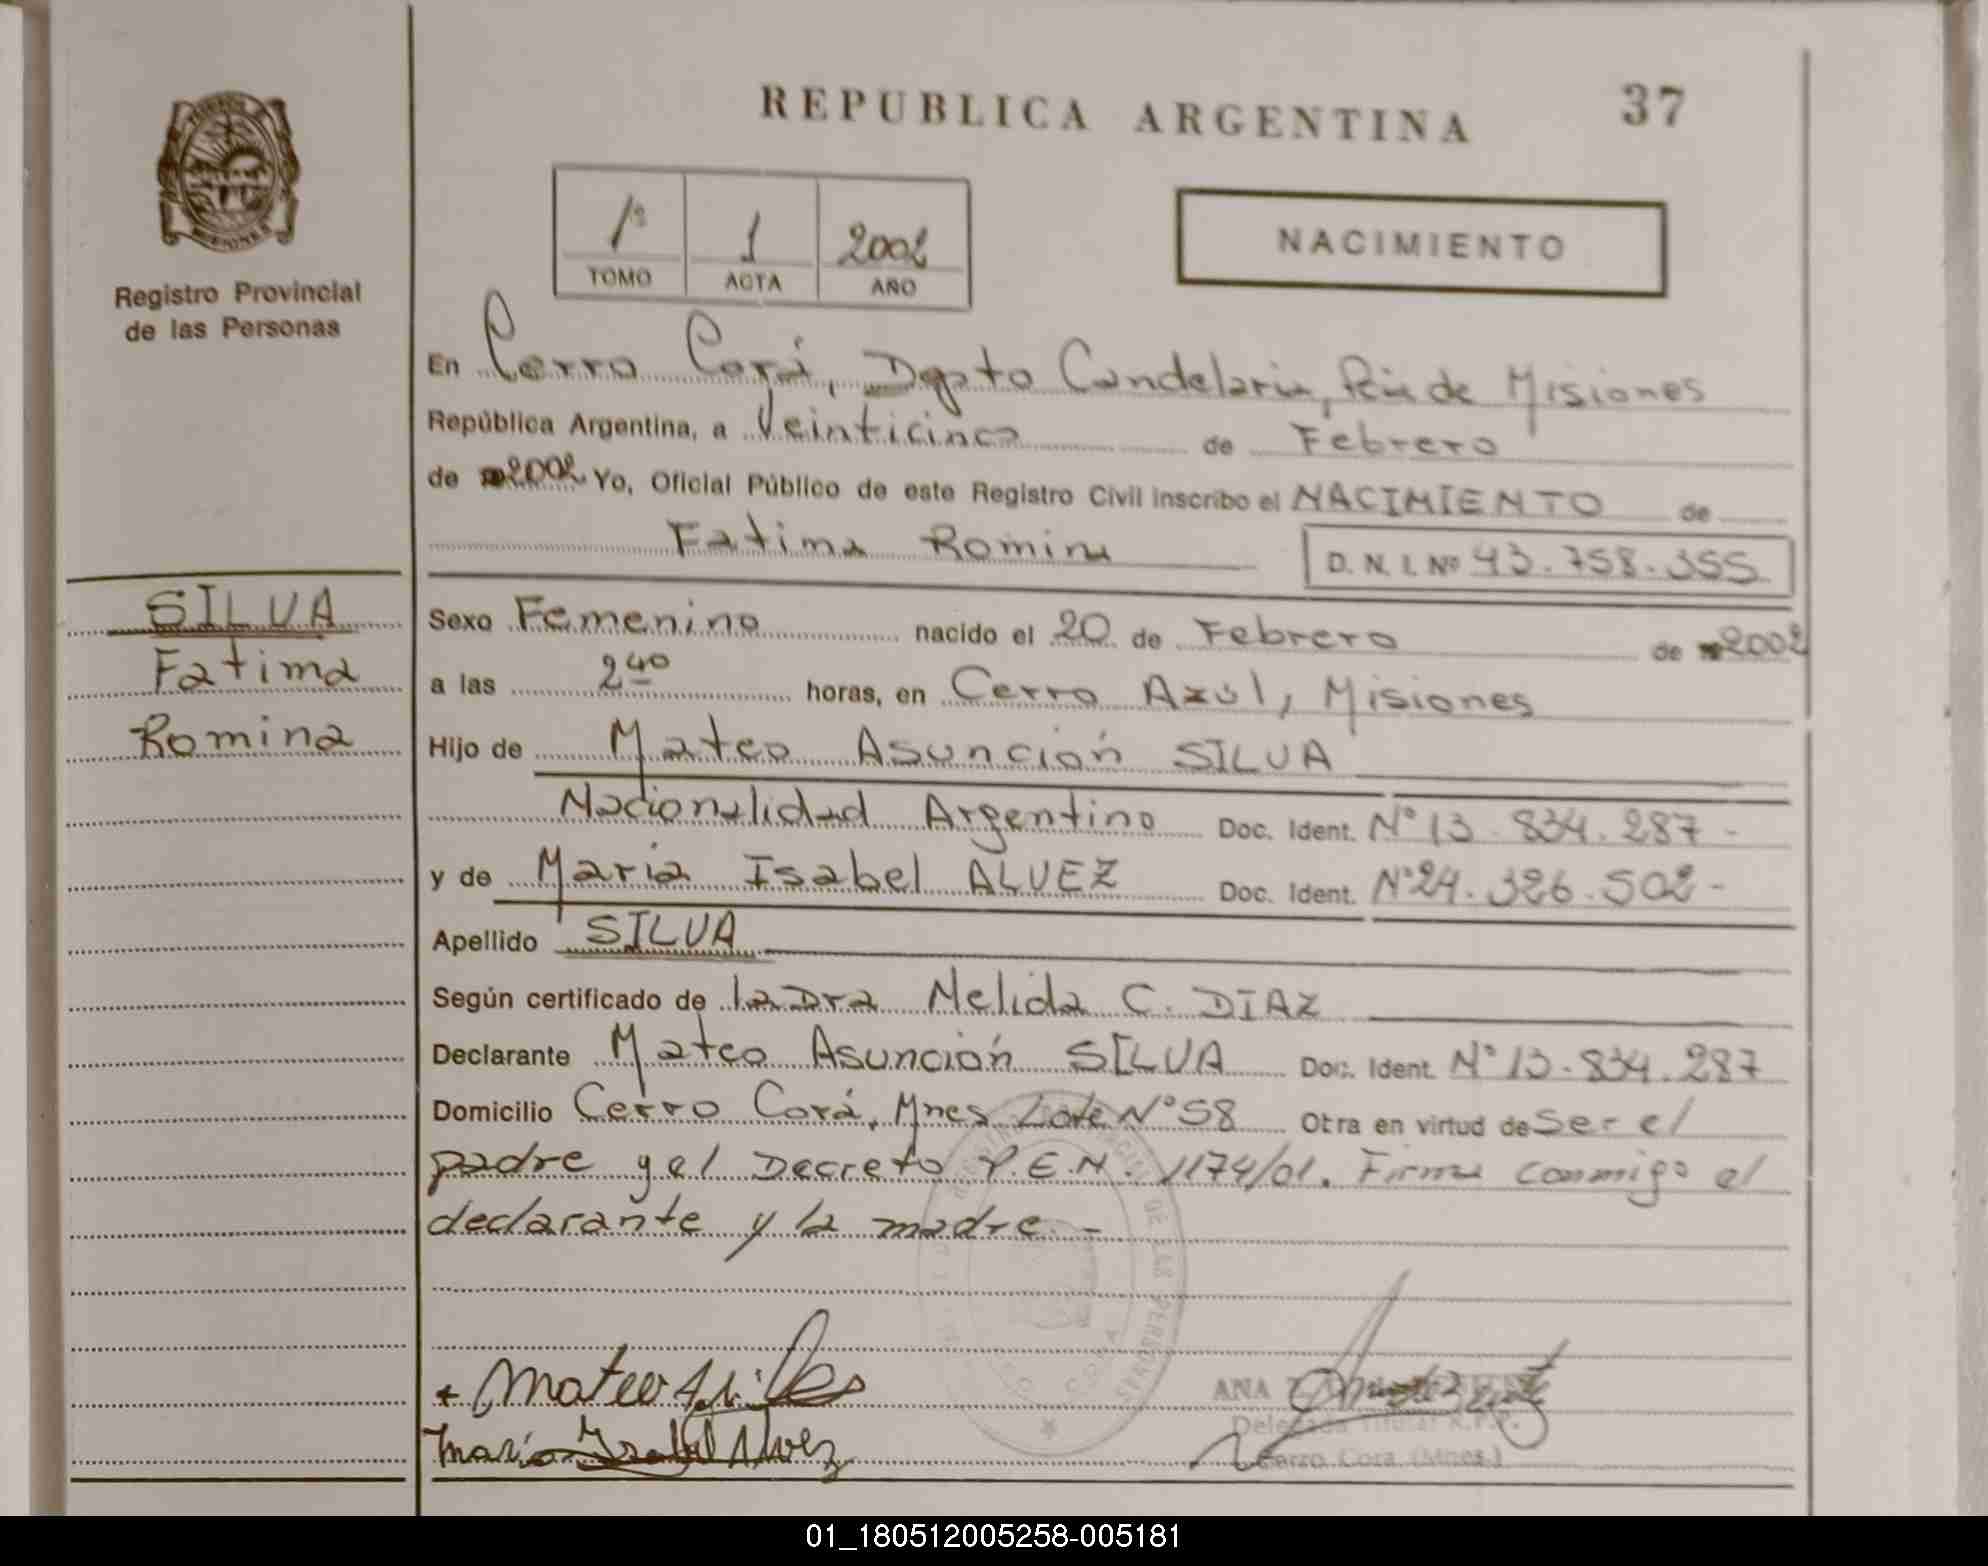 REPUBLICA ARGENTINA
37
MISIONES
Registro Provincial
de las Personas
1º
1
2002
TOMO
ACTA
AÑO
NACIMIENTO
En Cerro Corá, Dpto Candelaria, Pcia de Misiones
República Argentina, a Veinticinco de Febrero
de 2002 Yo, Oficial Público de este Registro Civil inscribo el NACIMIENTO de
Fatima Romina
D. N. I. Nº 43.758.355
SILVA
Fatima
Romina
Sexo Femenino nacido el 20 de Febrero de 2002
a las 2 40 horas, en Cerro Azul, Misiones
Hijo de Mateo Asunción SILVA
Nacionalidad Argentino Doc. Ident. Nº 13.834.287-
y de Maria Isabel ALVEZ Doc. Ident. Nº 24.326.502-
Apellido SILVA
Según certificado de la Dra Nelida C. DIAZ
Declarante Mateo Asunción SILVA Doc. Ident. Nº 13.834.287
Domicilio Cerro Corá, Mnes Lote Nº 58 Otra en virtud de Ser el
padre y el Decreto P.E.N. 1174/01. Firma conmigo el
declarante y la madre.-
DE LAS PERSONAS
CORA
Mateo
Maria Isabel Alvez
ANA
Delegada Titular R.P.P.
Cerro Cora (Mnes.)
01_180512005258-005181